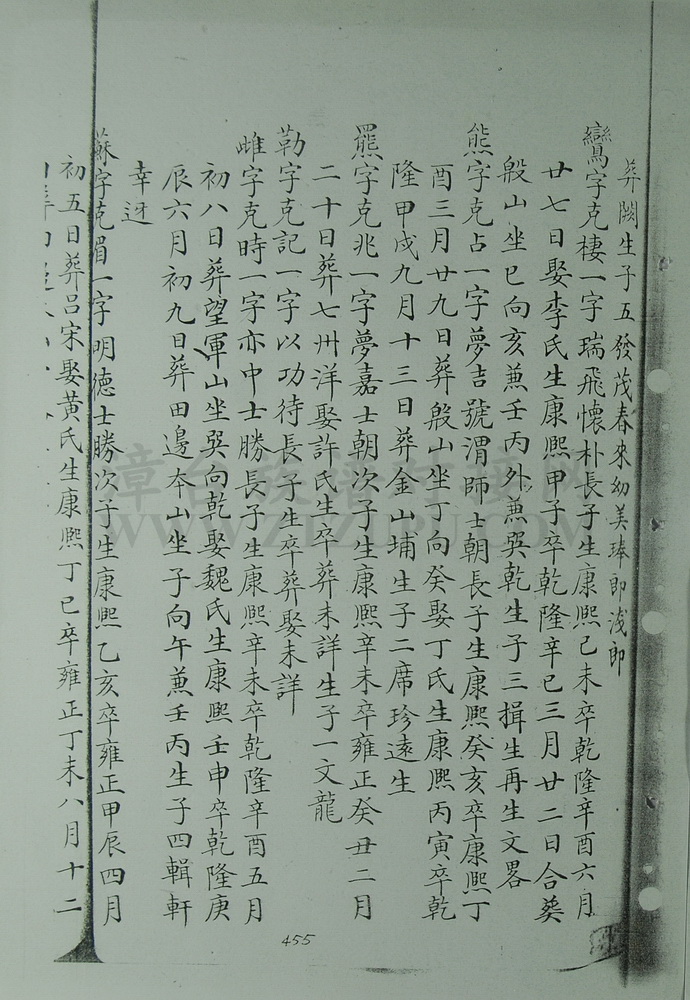 葬闕生子五發茂春來幼美瑧郎淺郎
鸞字克棲一字瑞飛懷朴長子生康熙己未卒乾隆辛酉六月
廿七日娶李氏生康熙甲子卒乾隆辛巳三月廿二日合葬
殷山坐巳向亥兼壬丙外兼巽乾生子三揖生再生文畧
熊字克占一字夢吉號渭師士朝長子生康熙癸亥卒康熙丁
酉三月廿九日葬殷山坐丁向癸娶丁氏生康熙丙寅卒乾
隆甲戌九月十三日葬金山埔生子二席珍遠生
羆字克兆一字夢嘉士朝次子生康熙辛未卒雍正癸丑二月
二十日葬七州洋娶許氏生卒葬未詳生子一文龍
勒字克記一字以功待長子生卒葬娶未詳
雎字克時一字亦中士勝長子生康熙辛未卒乾隆辛酉五月
初八日葬望軍山坐巽向乾娶魏氏生康熙壬申卒乾隆庚
辰六月初九日葬田邊本山坐子向午兼壬丙生子四輯軒
幸迓
蘇字克眉一字明德士勝次子生康熙乙亥卒雍正甲辰四月
初五日葬呂宋娶黃氏生康熙丁巳卒雍正丁未八月十二
漳台族譜對接網
WWW.ZTZUPU.COM
455